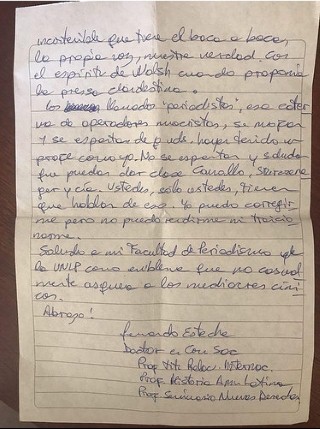 incontenible que tiene el boca a boca,
la propia voz, nuestra verdad. Con
el espíritu de Walsh cuando proponía
la prensa clandestina.
los llamados 'periodistas', esa cater
va de operadores macristas, se mofan
y se espantan de que uds. hayan tenido un
profe como yo. No se espantan y saludan
que puedan dar clase Cavallo,
y cía. Ustedes, sólo ustedes, tienen
que hablar de eso. Yo puedo corregir
me pero no puedo rendirme ni traicio
narme.
Saludo a mi Facultad de Periodismo de
la UNLP como emblema que no casual
mente asquea a los mediocres cíni
cos.
Abrazo!
Fernando Esteche
Doctor en Com Soc
Prof. Tit. Relac. Internac.
Prof. Historia Am Latina
Prof. Seminario Nuevos Derechos